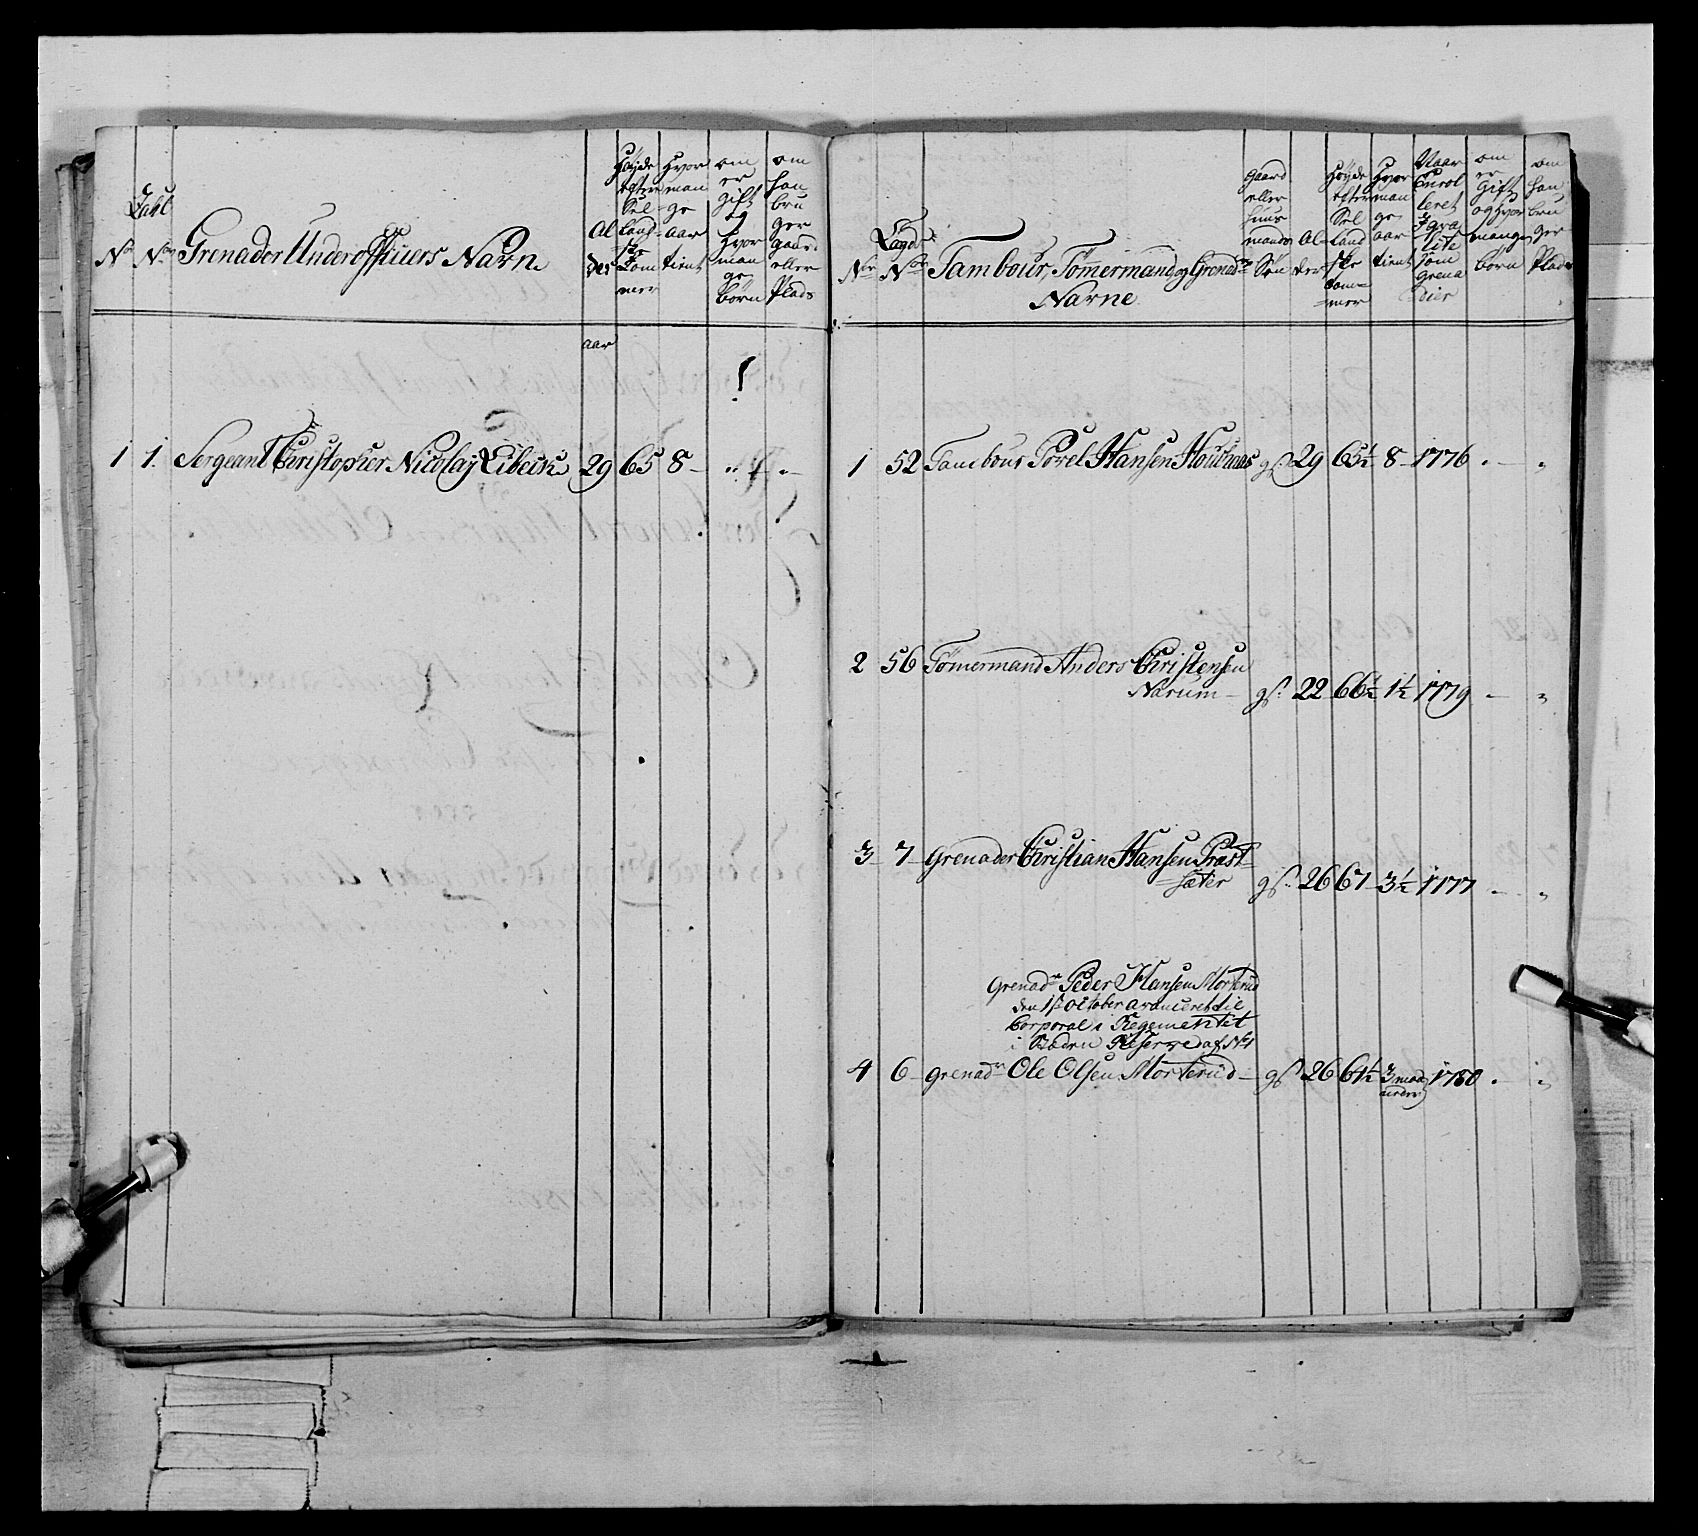 Zahl
No No Grenader Underofficiers Navn
Alder
Høyde efter Sællandske Tommer
Hvor mange aar tient
om er gift og hvor mange børn
om han bruger gaard eller Plads
aar
1 1. Sergeant Christopher Nicolaj 29 65 8 - „ „ -
Lægds
No No Tambour, Tømermand og Grenad
Navne
Gaard eller huusmands Søn
Alder
Høyde efter Sællandske Tommer
Hvor mange aar tient
Naar Enrolleret
som Grenadier
om er Gift og hvor mange børn
om han bruger Plads
1 52 Tambour Povel Hansen gS: 29 65½ 8 - 1776 „ - „
2 56 Tømermand Anders Christensen
Narum - gS: 22 66½ 1½ 1779 - „
3 7 Grenader Christian Hansen Præst-
sæter gS: 26 67 - 3½ 1777 - „
Grenadr Peder Hansen Morterud
den 1st October avanceret til
Corporal i Regementet
4 6 - grenadr Ole Olsen Morterud - gS 26 64½ 3 maaneder 1780 „ - „